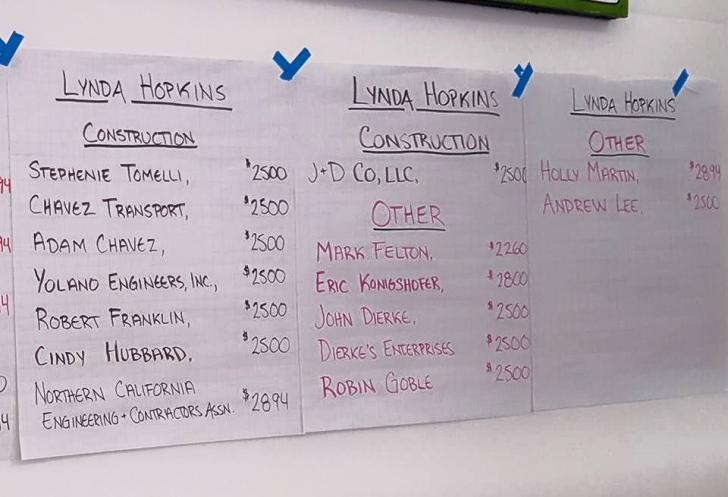 LYNDA HOPKINS
CONSTRUCTION
STEPHENIE TOMELLI, $2500
CHAVEZ TRANSPORT, $2500
ADAM CHAVEZ, $2500
YOLANO ENGINEERS, INC., $2500
ROBERT FRANKLIN, $2500
CINDY HUBBARD, $2500
NORTHERN CALIFORNIA
ENGINEERING + CONTRACTORS ASSN. $2894
LYNDA HOPKINS
CONSTRUCTION
J+D CO, LLC, $2500
OTHER
MARK FELTON, $2260
ERIC KONIGSHOFER, $2800
JOHN DIERKE, $2500
DIERKE'S ENTERPRISES $2500
ROBIN GOBLE $2500
LYNDA HOPKINS
OTHER
HOLLY MARTIN, $2894
ANDREW LEE, $2500